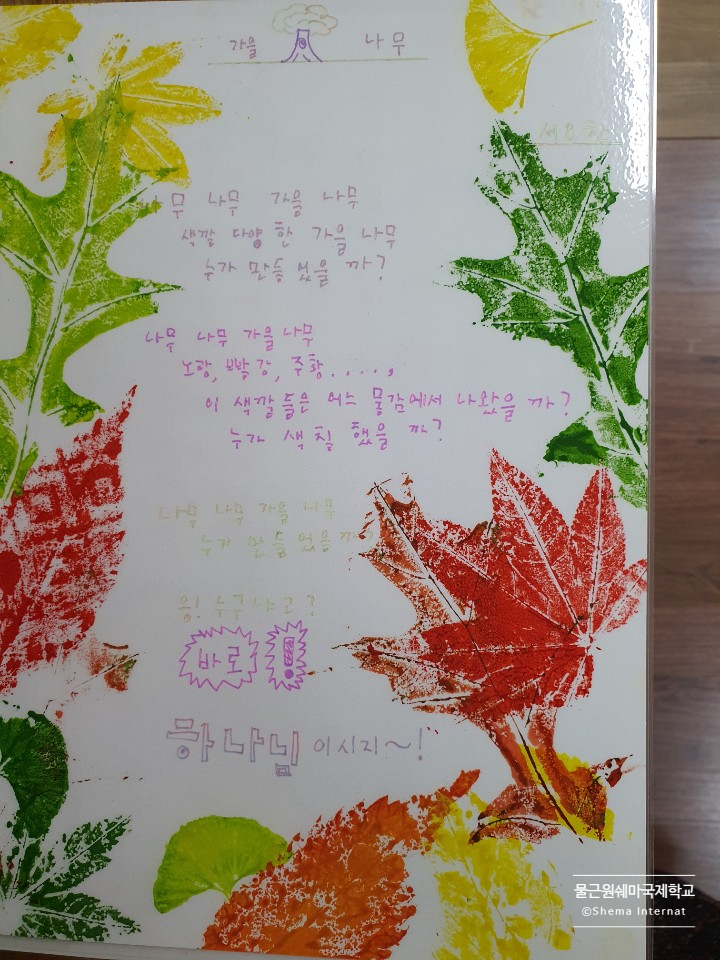 가을 나무
나무 나무 가을 나무
색깔 다양한 가을 나무
누가 만들었을까?
나무 나무 가을 나무
노랑, 빨강, 주황.....,
이 색깔들은 어느 물감에서 나왔을까?
누가 색칠했을까?
나무 나무 가을 나무
누가 만들었을까?
응! 누구냐고?
바로 !
하나님이시지~!
물근원쉐마국제학교
©Shema Internat